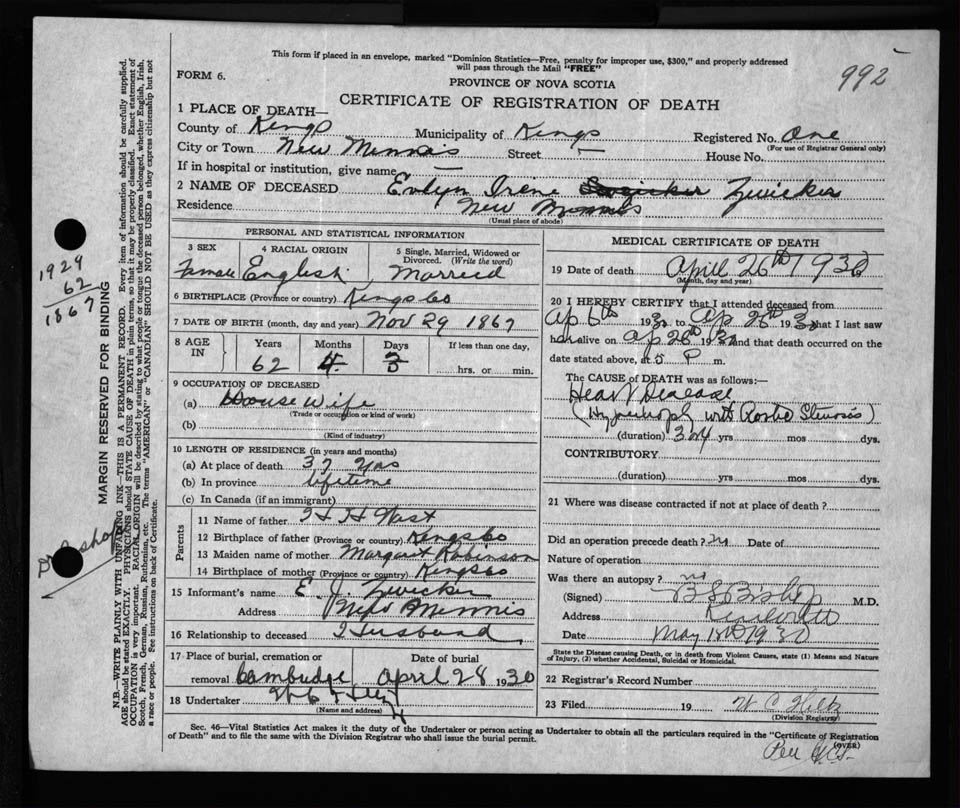 This form if placed in an envelope, marked "Dominion Statistics—Free, penalty for improper use, $300," and properly addressed
will pass through the Mail "FREE"
992
FORM 6.
PROVINCE OF NOVA SCOTIA
CERTIFICATE OF REGISTRATION OF DEATH
1 PLACE OF DEATH—
County of Kings Municipality of Kings Registered No. One
(For use of Registrar General only)
City or Town New Minnas Street — House No.
If in hospital or institution, give name —
2 NAME OF DECEASED Evlyn Irene Zwicker
Residence New Minnas
(Usual place of abode)
PERSONAL AND STATISTICAL INFORMATION
3 SEX Female
4 RACIAL ORIGIN English
5 Single, Married, Widowed or Divorced. (Write the word) Married
6 BIRTHPLACE (Province or country) Kings Co
7 DATE OF BIRTH (month, day and year) Nov 29 1867
8 AGE IN Years Months Days If less than one day,
62 4 3 hrs. or min.
9 OCCUPATION OF DECEASED
(a) House Wife
(Trade or occupation or kind of work)
(b)
(Kind of industry)
10 LENGTH OF RESIDENCE (in years and months)
(a) At place of death 37 yrs
(b) In province lifetime
(c) In Canada (if an immigrant)
Parents
11 Name of father West
12 Birthplace of father (Province or country) Kings Co
13 Maiden name of mother Margaret Robinson
14 Birthplace of mother (Province or country) Kings Co
15 Informant's name E. J. Zwicker
Address New Minnis
16 Relationship to deceased Husband
17 Place of burial, cremation or removal Cambridge
Date of burial April 28 1930
18 Undertaker
(Name and address)
MEDICAL CERTIFICATE OF DEATH
19 Date of death April 26th 1930
(Month, day and year)
20 I HEREBY CERTIFY that I attended deceased from
Ap 6th 1930 to Ap 26th 1930 that I last saw
her alive on Ap 26th 1930 and that death occurred on the
date stated above, at P m.
The CAUSE of DEATH was as follows:—
Heart Disease
(Hypertrophy with Aortic Stenosis)
(duration) yrs mos dys.
CONTRIBUTORY
(duration) yrs mos dys.
21 Where was disease contracted if not at place of death?
Did an operation precede death? Date of
Nature of operation
Was there an autopsy? no
(Signed) Bishop M.D.
Address Kentville
Date May 1930
State the Disease causing Death, or in death from Violent Causes, state (1) Means and Nature of Injury, (2) whether Accidental, Suicidal or Homicidal.
22 Registrar's Record Number
23 Filed 19
(Division Registrar)
Sec. 46—Vital Statistics Act makes it the duty of the Undertaker or person acting as Undertaker to obtain all the particulars required in the "Certificate of Registration
of Death" and to file the same with the Division Registrar who shall issue the burial permit.
(OVER)
MARGIN RESERVED FOR BINDING
N.B.—WRITE PLAINLY WITH UNFADING INK—THIS IS A PERMANENT RECORD. Every item of information should be carefully supplied.
AGE should be stated EXACTLY. PHYSICIANS should STATE CAUSE OF DEATH in plain terms, so that it may be properly classified. Exact statement of
OCCUPATION is very important. RACIAL ORIGIN will be described by stating to what people or tongue the deceased person belonged, whether English, Irish,
Scotch, French, German, Russian, Ruthenian, etc. The terms "AMERICAN" or "CANADIAN" SHOULD NOT BE USED as they express citizenship but not
a race or people. See instructions on back of Certificate.
1929
62
1867